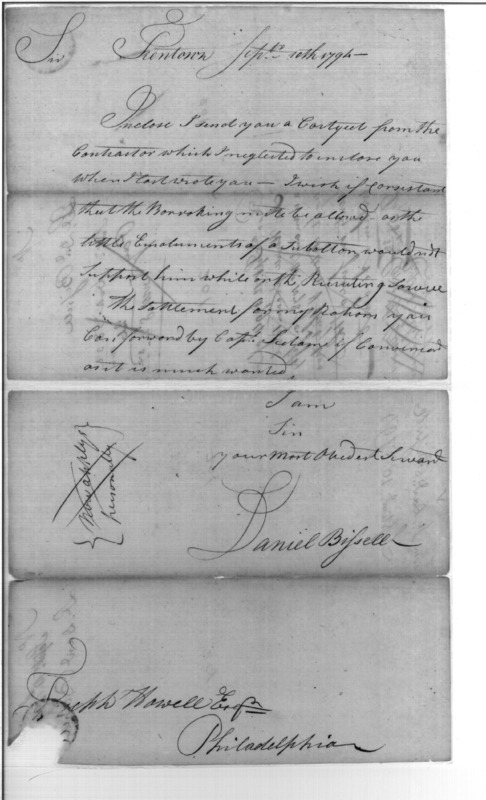 Sir Trentown Sept. 10th 1794—
Inclose I send you a Certyect from the
Contractor which I neglected to inclose you
when I last wrote you— I wish if Consistant
that the Borroking mite be allowd as the
little Emoluments of a Subolton would not
Support him while on the Recruting Sarvice
The Sattlement for my Rahons you
Can forword by Capt.
as it is much wanted.
I am
Sir
your Most Obedest Servant
Daniel Bissell
personally
Joseph Howell Esqr
Philadelphia